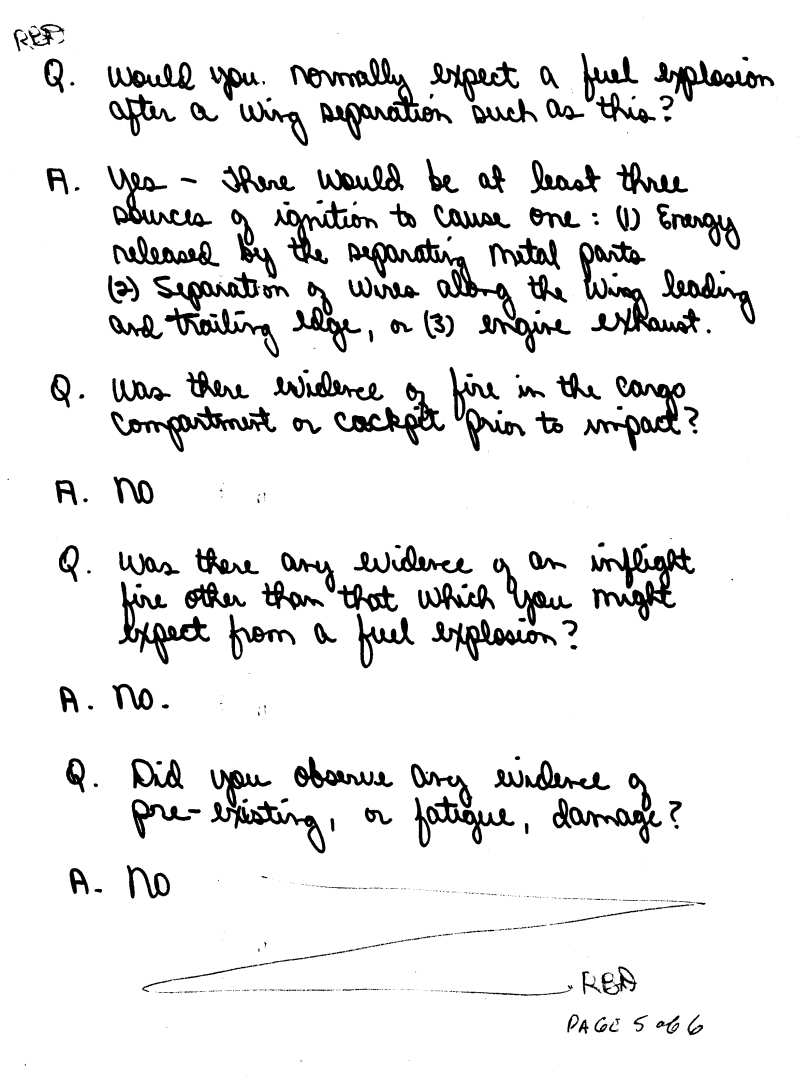 RBA
Q. Would you. normally expect a fuel explosion
after a wing separation such as this?
A. Yes - There would be at least three
sources of ignition to cause one: (1) Energy
released by the separating metal parts
(2) Separation of wires along the wing leading
and trailing edge, or (3) engine exhaust.
Q. Was there evidence of fire in the cargo
compartment or cockpit prior to impact?
A. No
Q. Was there any evidence of an inflight
fire other than that which you might
expect from a fuel explosion?
A. No.
Q. Did you observe any evidence of
pre-existing, or fatigue, damage?
A- No
RBA
PAGE 5 of 6